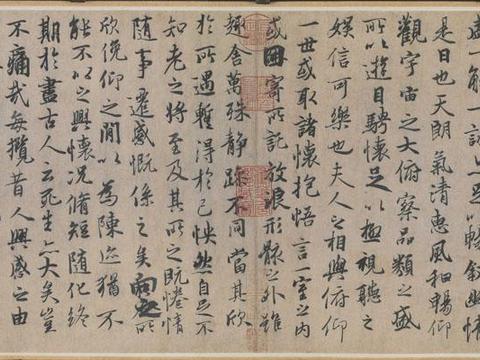 盛一觴一詠亦足以暢敘幽情
是日也天朗氣清惠風和暢仰
觀宇宙之大俯察品類之盛
所以遊目騁懷足以極視聽之
娛信可樂也夫人之相與俯仰
一世或取諸懷抱悟言一室之內
或因寄所託放浪形骸之外雖
趣舍萬殊靜躁不同當其欣
於所遇暫得於己怏然自足不
知老之將至及其所之既惓情
隨事遷感慨係之矣向之所
欣俛仰之閒以為陳迹猶不
能不以之興懷況脩短隨化終
期於盡古人云死生亦大矣豈
不痛哉每攬昔人興感之由